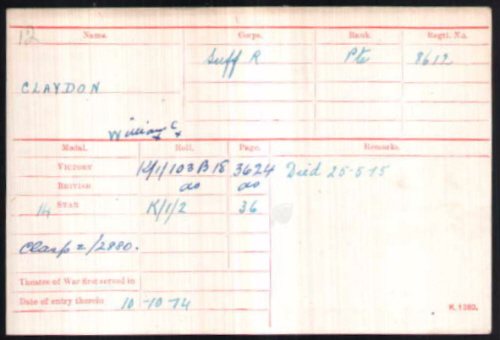 12 Name. Corps. Rank. Regtl. No.
Suff R Pte 8612
CLAYDON
William C
Medal. Roll. Page. Remarks.
VICTORY K/1/103B15 3624 Died 25-5-15
BRITISH do do
14 STAR K/1/2 36
Clasp =/2980.
Theatre of War first served in
Date of entry therein 10-10-14
K.1380.